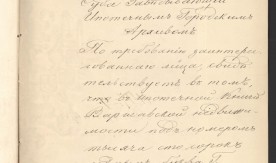 Судъ Завѣдывающій
Ипотечнымъ Городскимъ
Архивомъ
По требованію заинтере-
сованнаго лица, свидѣ-
тельствуетъ въ томъ,
что въ ипотечной книгѣ
Варшавской недвижи-
мости подъ номеромъ
тысяча сто сорокъ